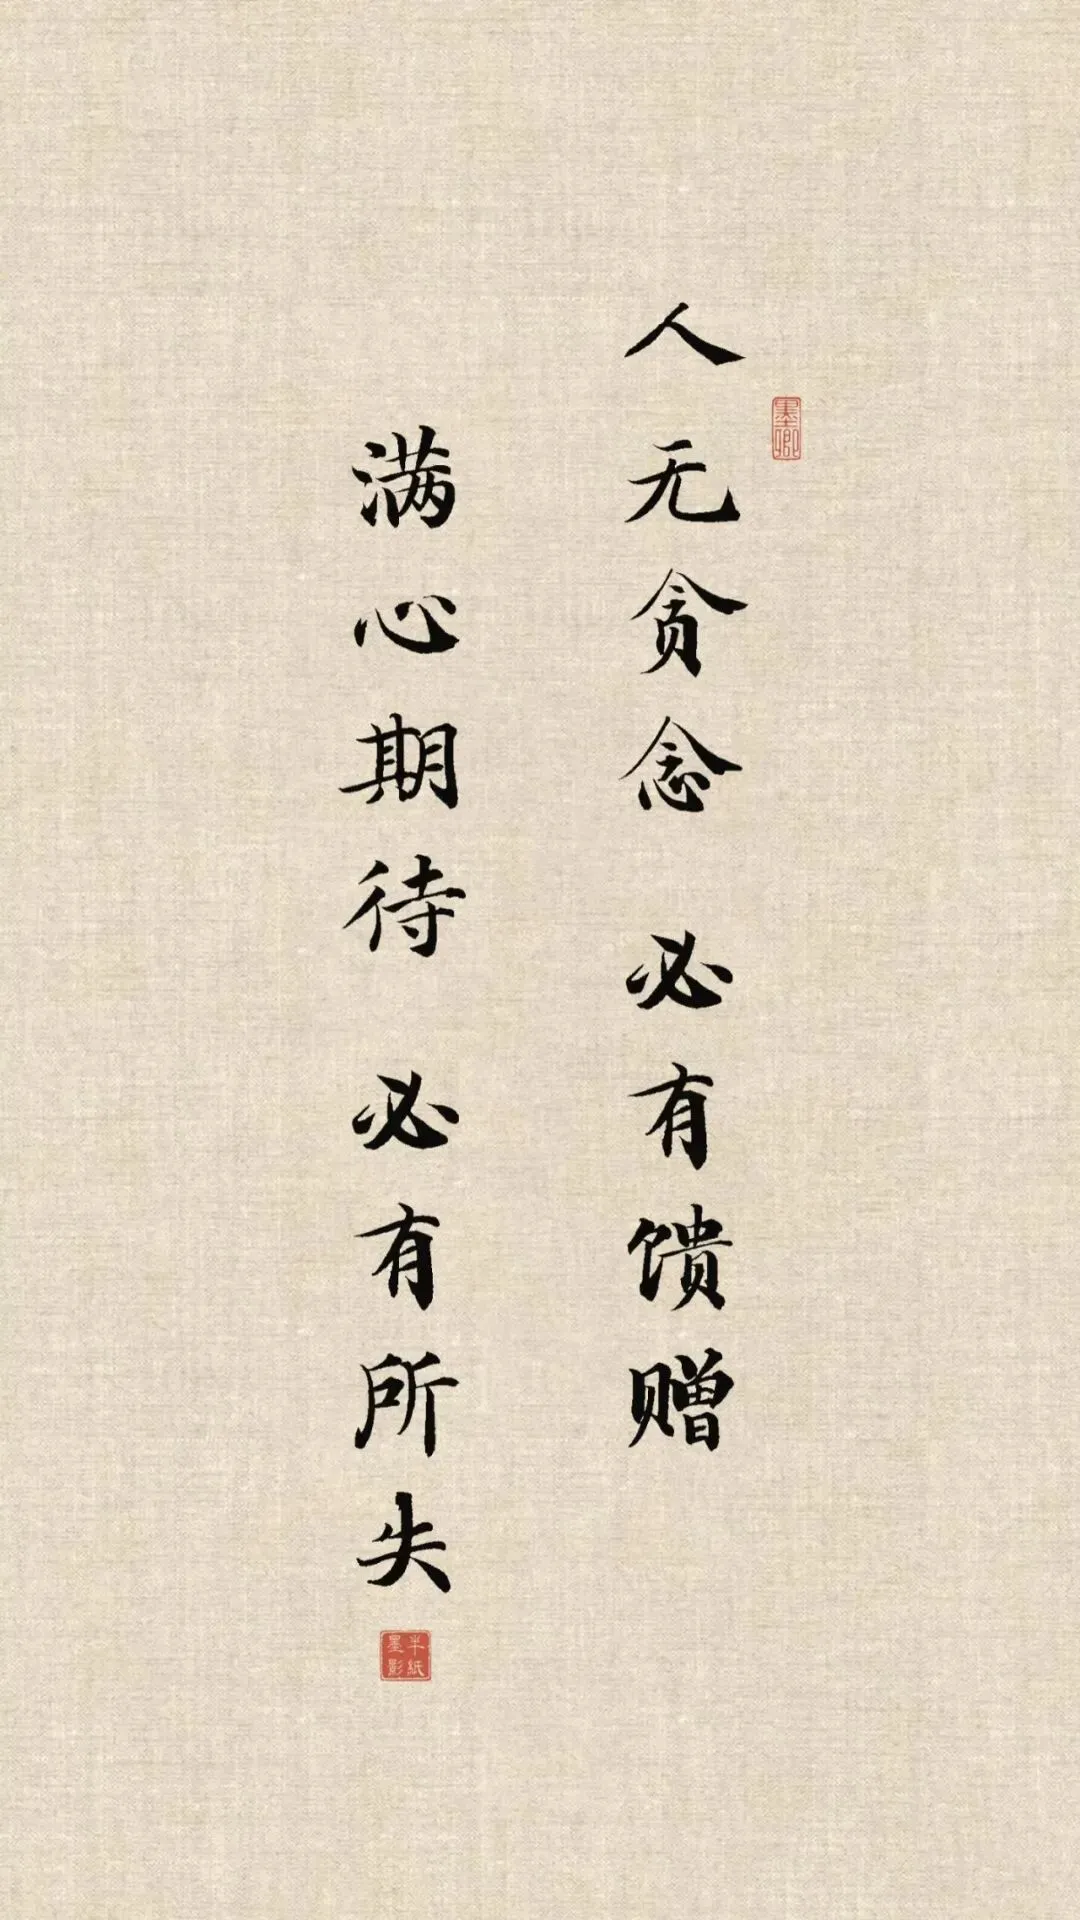 人无贪念 必有馈赠
墨卿
满心期待 必有所失
半纸
墨影